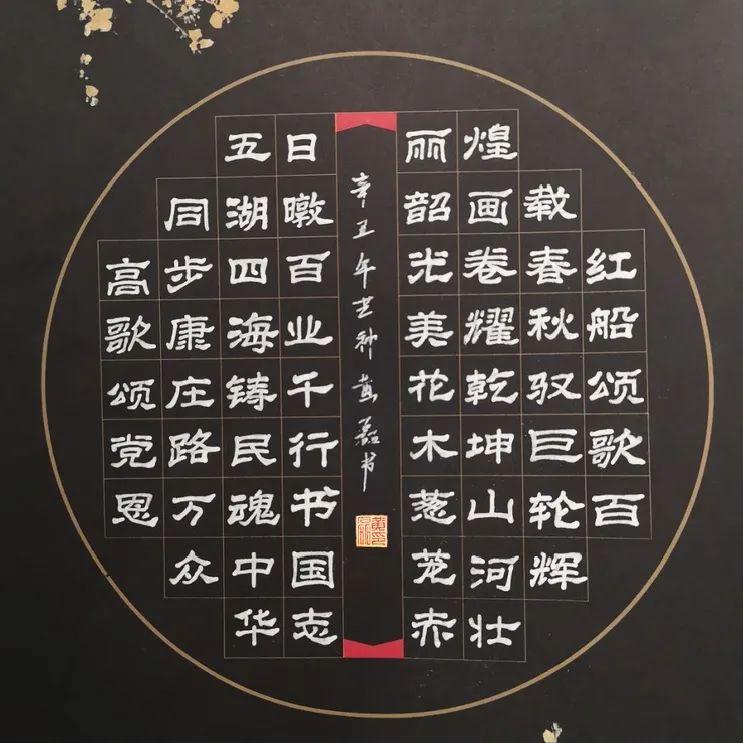 红船颂歌百
载春秋驭巨轮辉
煌画卷耀乾坤山河壮
丽韶光美花木葱茏赤
日暾百业千行书国志
五湖四海铸民魂中华
同步康庄路万众
高歌颂党恩
辛丑年芒种黄磊书